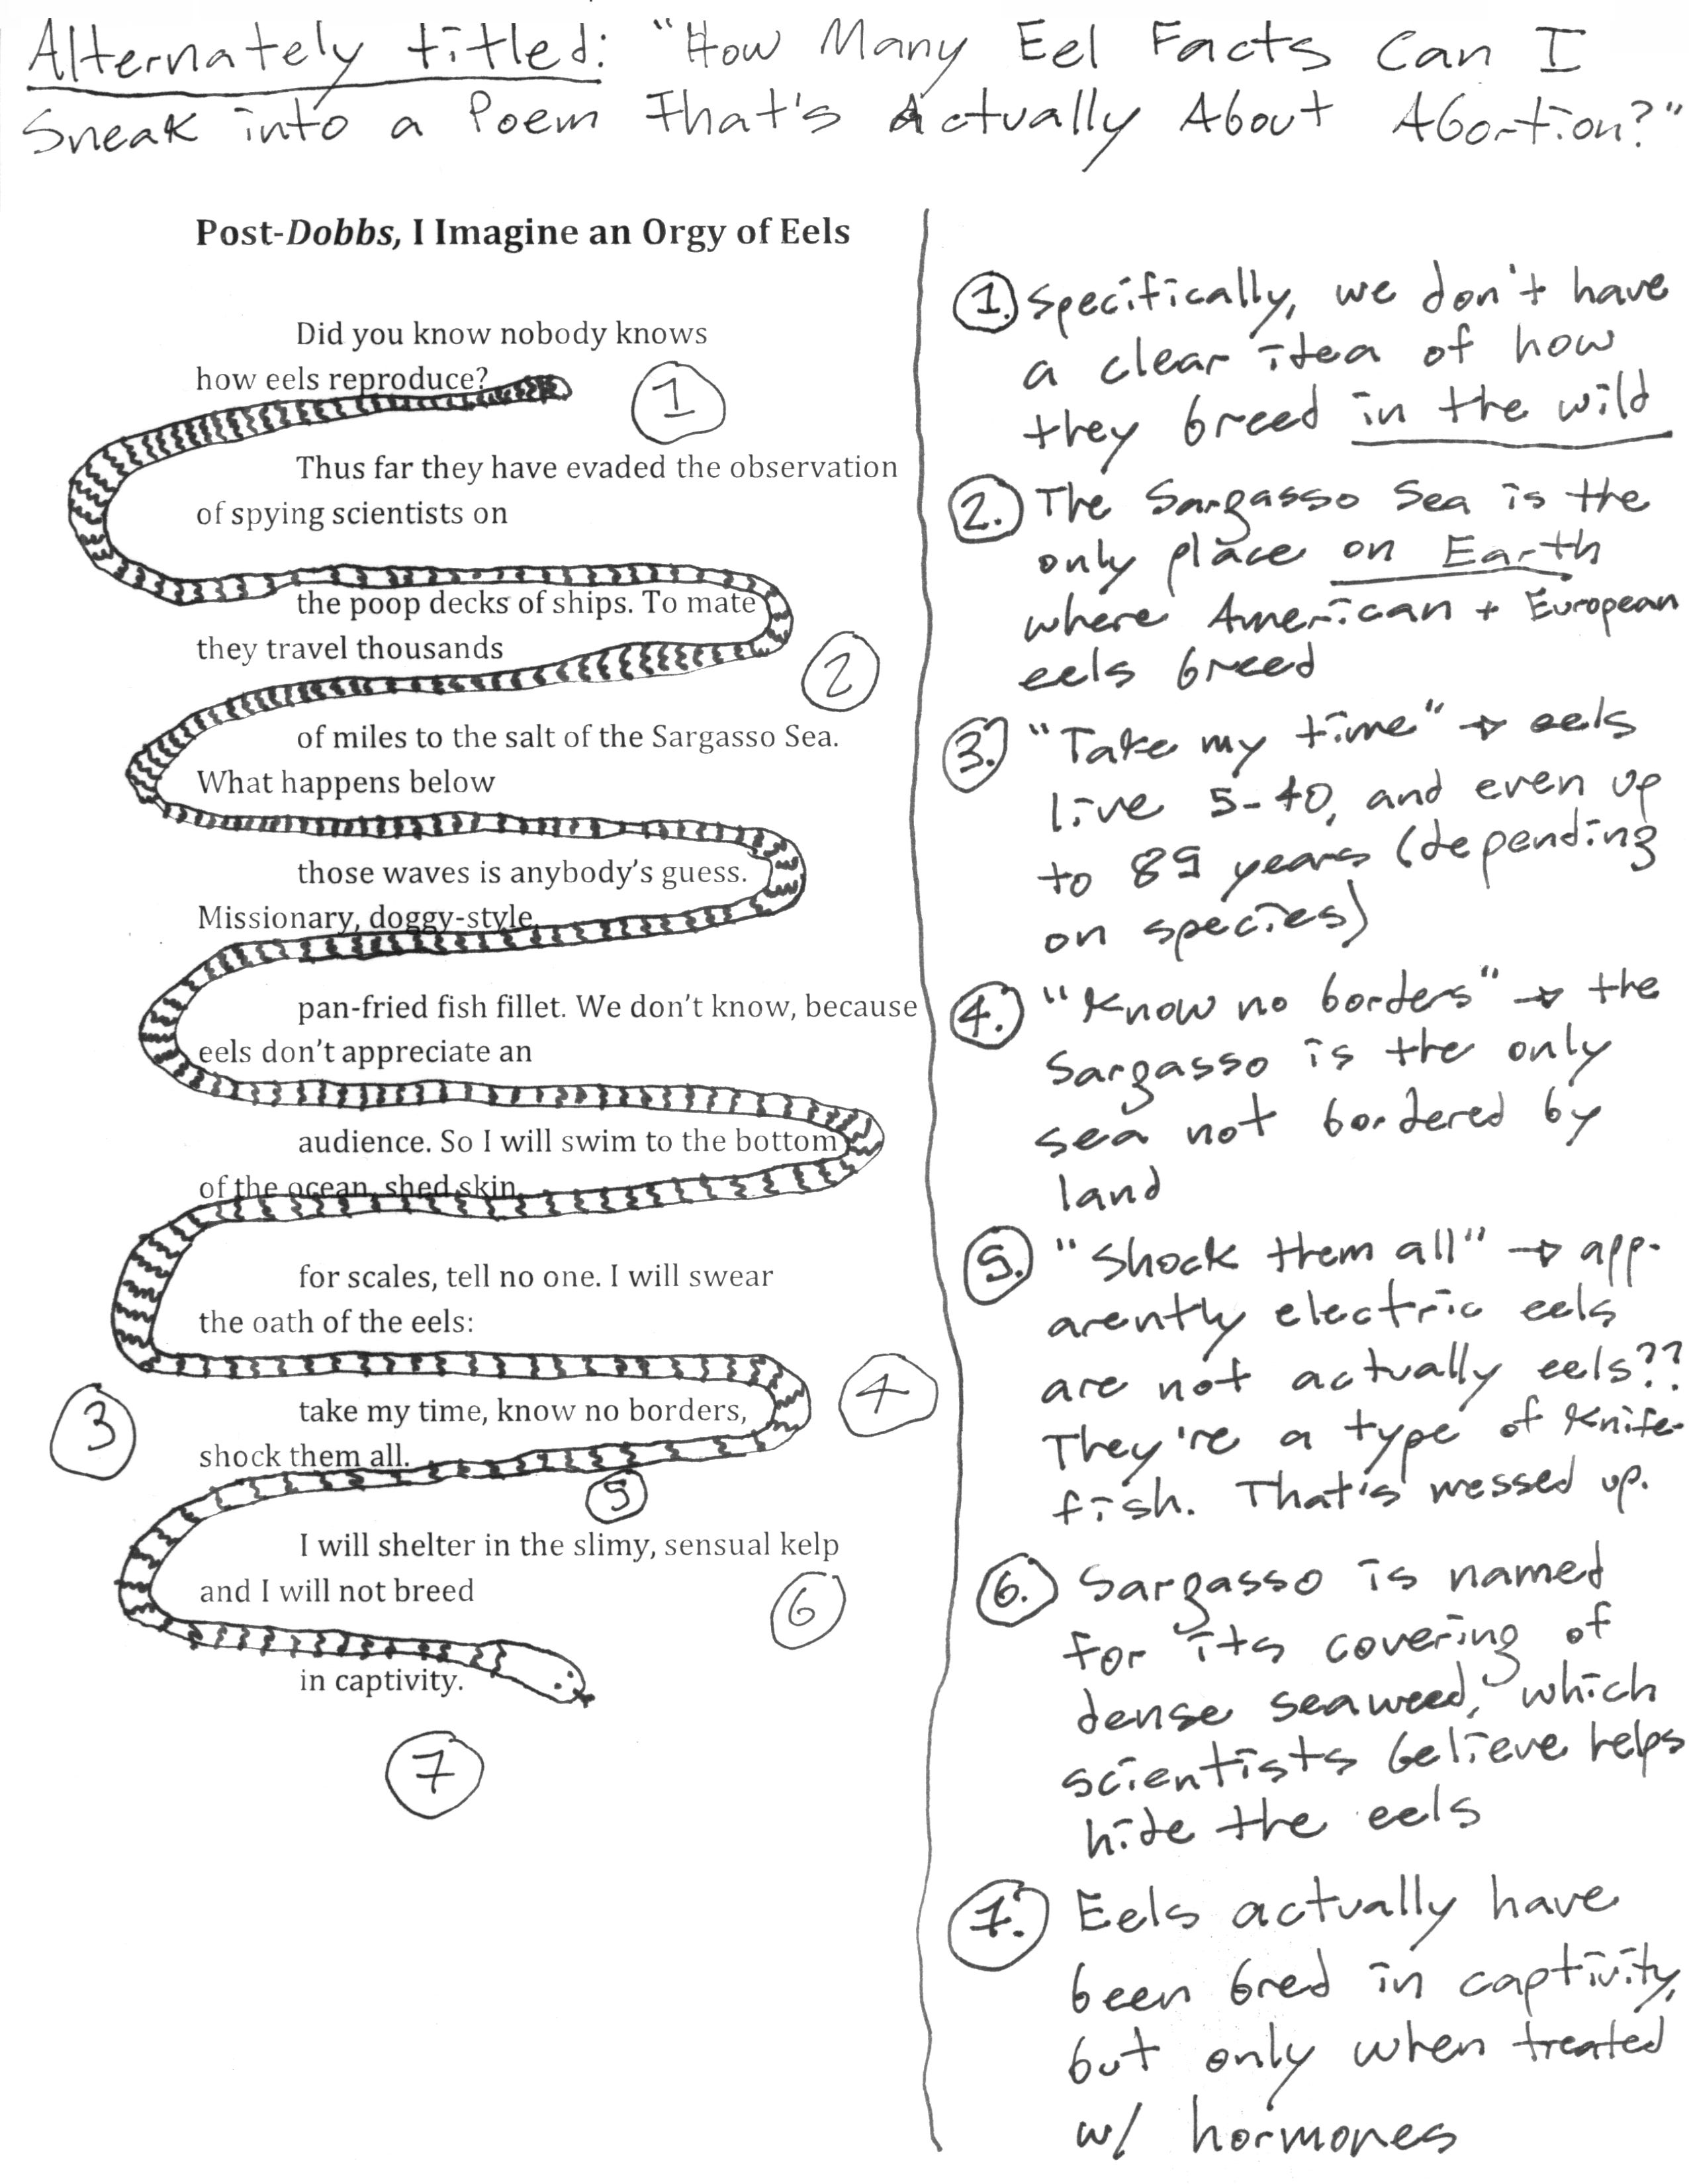 Alternately titled: "How Many Eel Facts Can I
Sneak into a Poem That's Actually About Abortion?"
Post-Dobbs, I Imagine an Orgy of Eels
Did you know nobody knows
how eels reproduce?
1
Thus far they have evaded the observation
of spying scientists on
the poop decks of ships. To mate
they travel thousands
2
of miles to the salt of the Sargasso Sea.
What happens below
those waves is anybody's guess.
Missionary, doggy-style,
pan-fried fish fillet. We don't know, because
eels don't appreciate an
audience. So I will swim to the bottom
of the ocean, shed skin
for scales, tell no one. I will swear
the oath of the eels:
3
take my time, know no borders,
4
shock them all.
5
I will shelter in the slimy, sensual kelp
and I will not breed
6
in captivity.
7
1. Specifically, we don't have
a clear idea of how
they breed in the wild
2. The Sargasso Sea is the
only place on Earth
where American + European
eels breed
3. "Take my time" → eels
live 5-40, and even up
to 85 years (depending
on species)
4. "Know no borders" → the
Sargasso is the only
sea not bordered by
land
5. "Shock them all" → app-
arently electric eels
are not actually eels??
They're a type of knife-
fish. That's messed up.
6. Sargasso is named
for its covering of
dense seaweed, which
scientists believe helps
hide the eels
7. Eels actually have
been bred in captivity,
but only when treated
w/ hormones